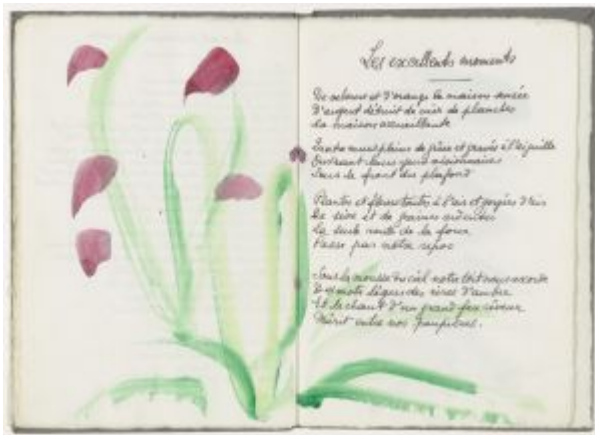 Les excellents moments
De velours et d'orange la maison sensée
D'argent détruit de cuir de planches
La maison accueillante
Quatre murs pleins de grâce et gravés à l'aiguille
Ouvrant leurs yeux visionnaires
Sous le front du plafond
Plantes et fleurs toutes à l'air et gorgées d'eau
De sève et de graines
La seule route de la force
Passe par notre repos
Sous la mousse du ciel notre toit nous accorde
Des mots légers des rires d'ambre
Et le chant d'un grand feu rêveur
Mûrit entre nos paupières.